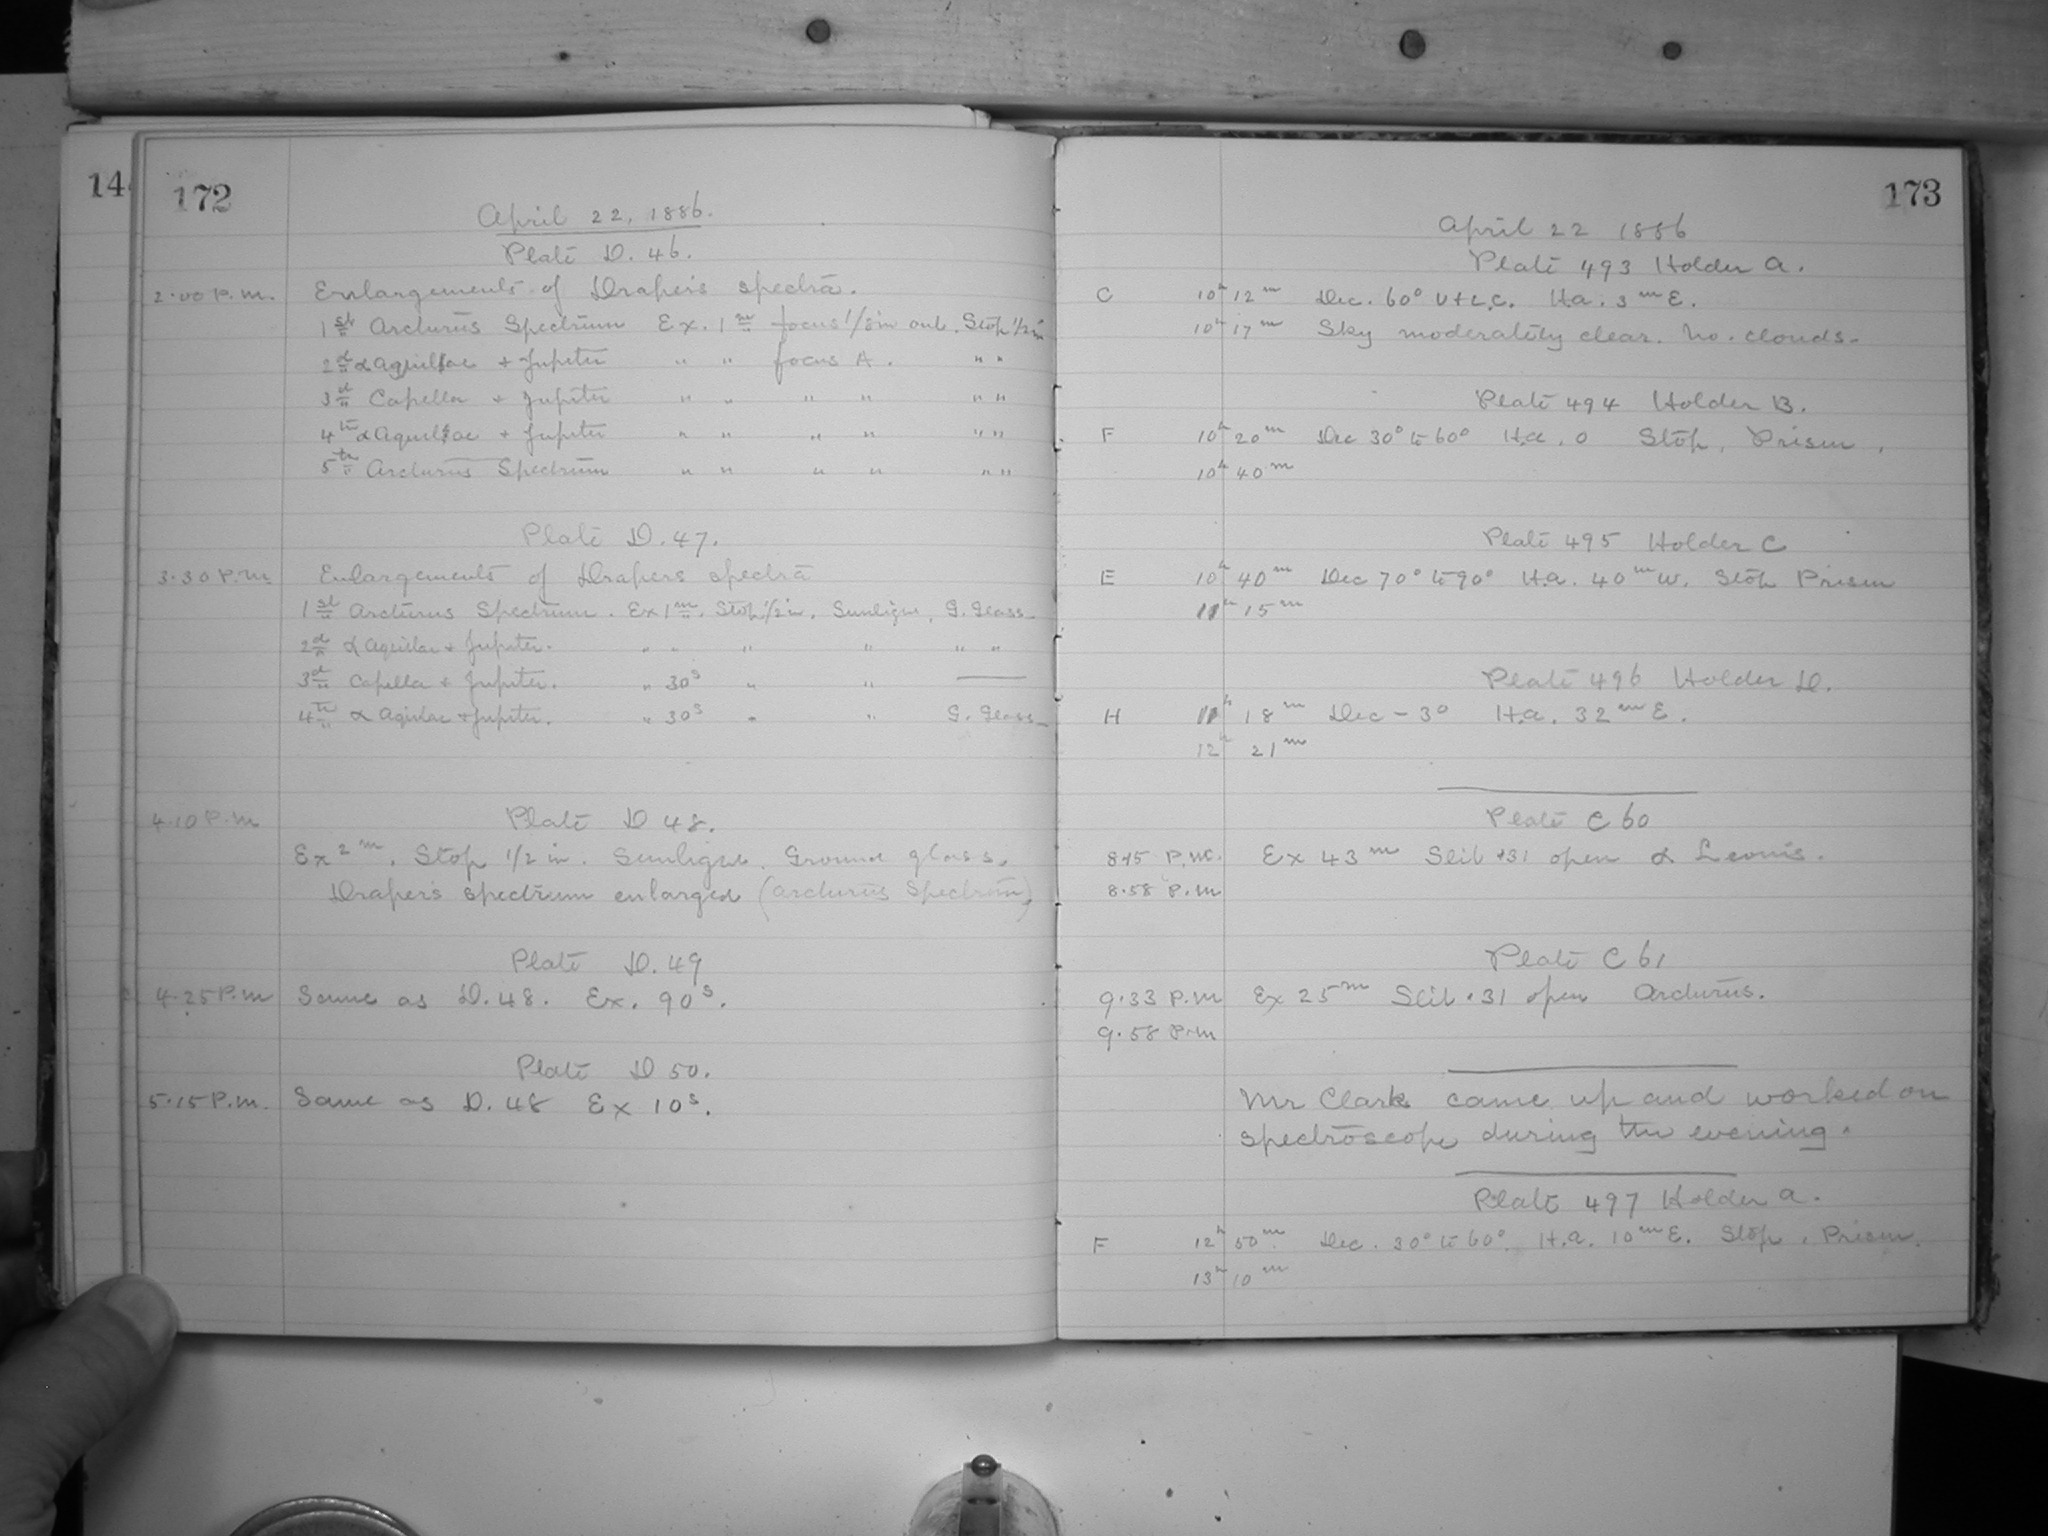 14
172
April 22, 1886.
Plate D. 46.
2.00 P.m. Enlargements of Draper's spectra.
1st Arcturus Spectrum Ex. 1m focus 1/8 in out. Stop 1/2 in
2d α Aquilae + Jupiter " " focus A. " "
3d Capella + Jupiter " " " " " "
4th α Aquilae + Jupiter " " " " " "
5th Arcturus Spectrum " " " " " "
Plate D. 47.
3.30 P.m. Enlargements of Drapers spectra
1st Arcturus Spectrum. Ex 1m. Stop 1/2 in. Sunlight, G. Glass.
2d α Aquilae + Jupiter. " " " " " "
3d Capella + Jupiter. " 30s " " —
4th α Aqilae + Jupiter. " 30s " " G. Glass.
4.10 P.m Plate D 48.
Ex 2m. Stop 1/2 in. Sunlight. Ground glass.
Draper's spectrum enlarged (Arcturus Spectrum).
Plate D. 49
4.25 P.m Same as D. 48. Ex. 90s.
Plate D 50.
5.15 P.m. Same as D. 48 Ex 10s.
173
April 22 1886
Plate 493 Holder A.
C 10h 12m Dec. 60° U+L.C. H.a. 3m E.
10h 17m Sky moderately clear. No. clouds.
Plate 494 Holder B.
F 10h 20m Dec 30° to 60° H.a. 0 Stop, Prism.
10h 40m
Plate 495 Holder C
E 10h 40m Dec 70° to 90° H.a. 40m W. Stop Prism
11h 15m
Plate 496 Holder D.
H 11h 18m Dec - 3° H.a. 32m E.
12h 21m
Plate C 60
8.15 P.m. Ex 43m Slit .31 open α Leonis.
8.58 P.m
Plate C 61
9.33 P.m Ex 25m Slit .31 open Arcturus.
9.58 P.m
Mr Clark came up and worked on
spectroscope during the evening.
Plate 497 Holder A.
F 12h 50m Dec. 30° to 60°. H.a. 10m E. Stop, Prism.
13h 10m